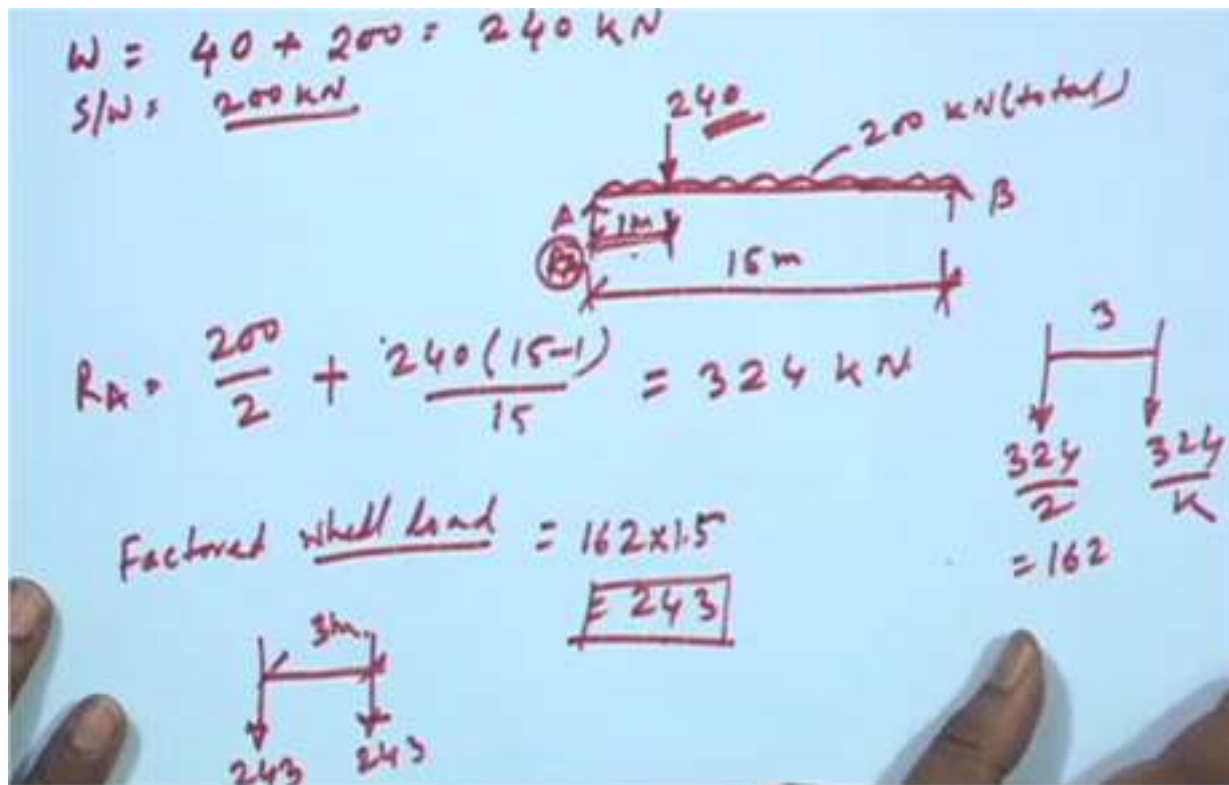 W = 40 + 200 = 240 KN
S/W = 200 KN
240
200 KN (total)
A
B
1m
15m
RA = 200/2 + 240(15-1)/15 = 324 KN
3
324/2
324/K
= 162
Factored wheel load = 162x1.5
= 243
3m.
243
243